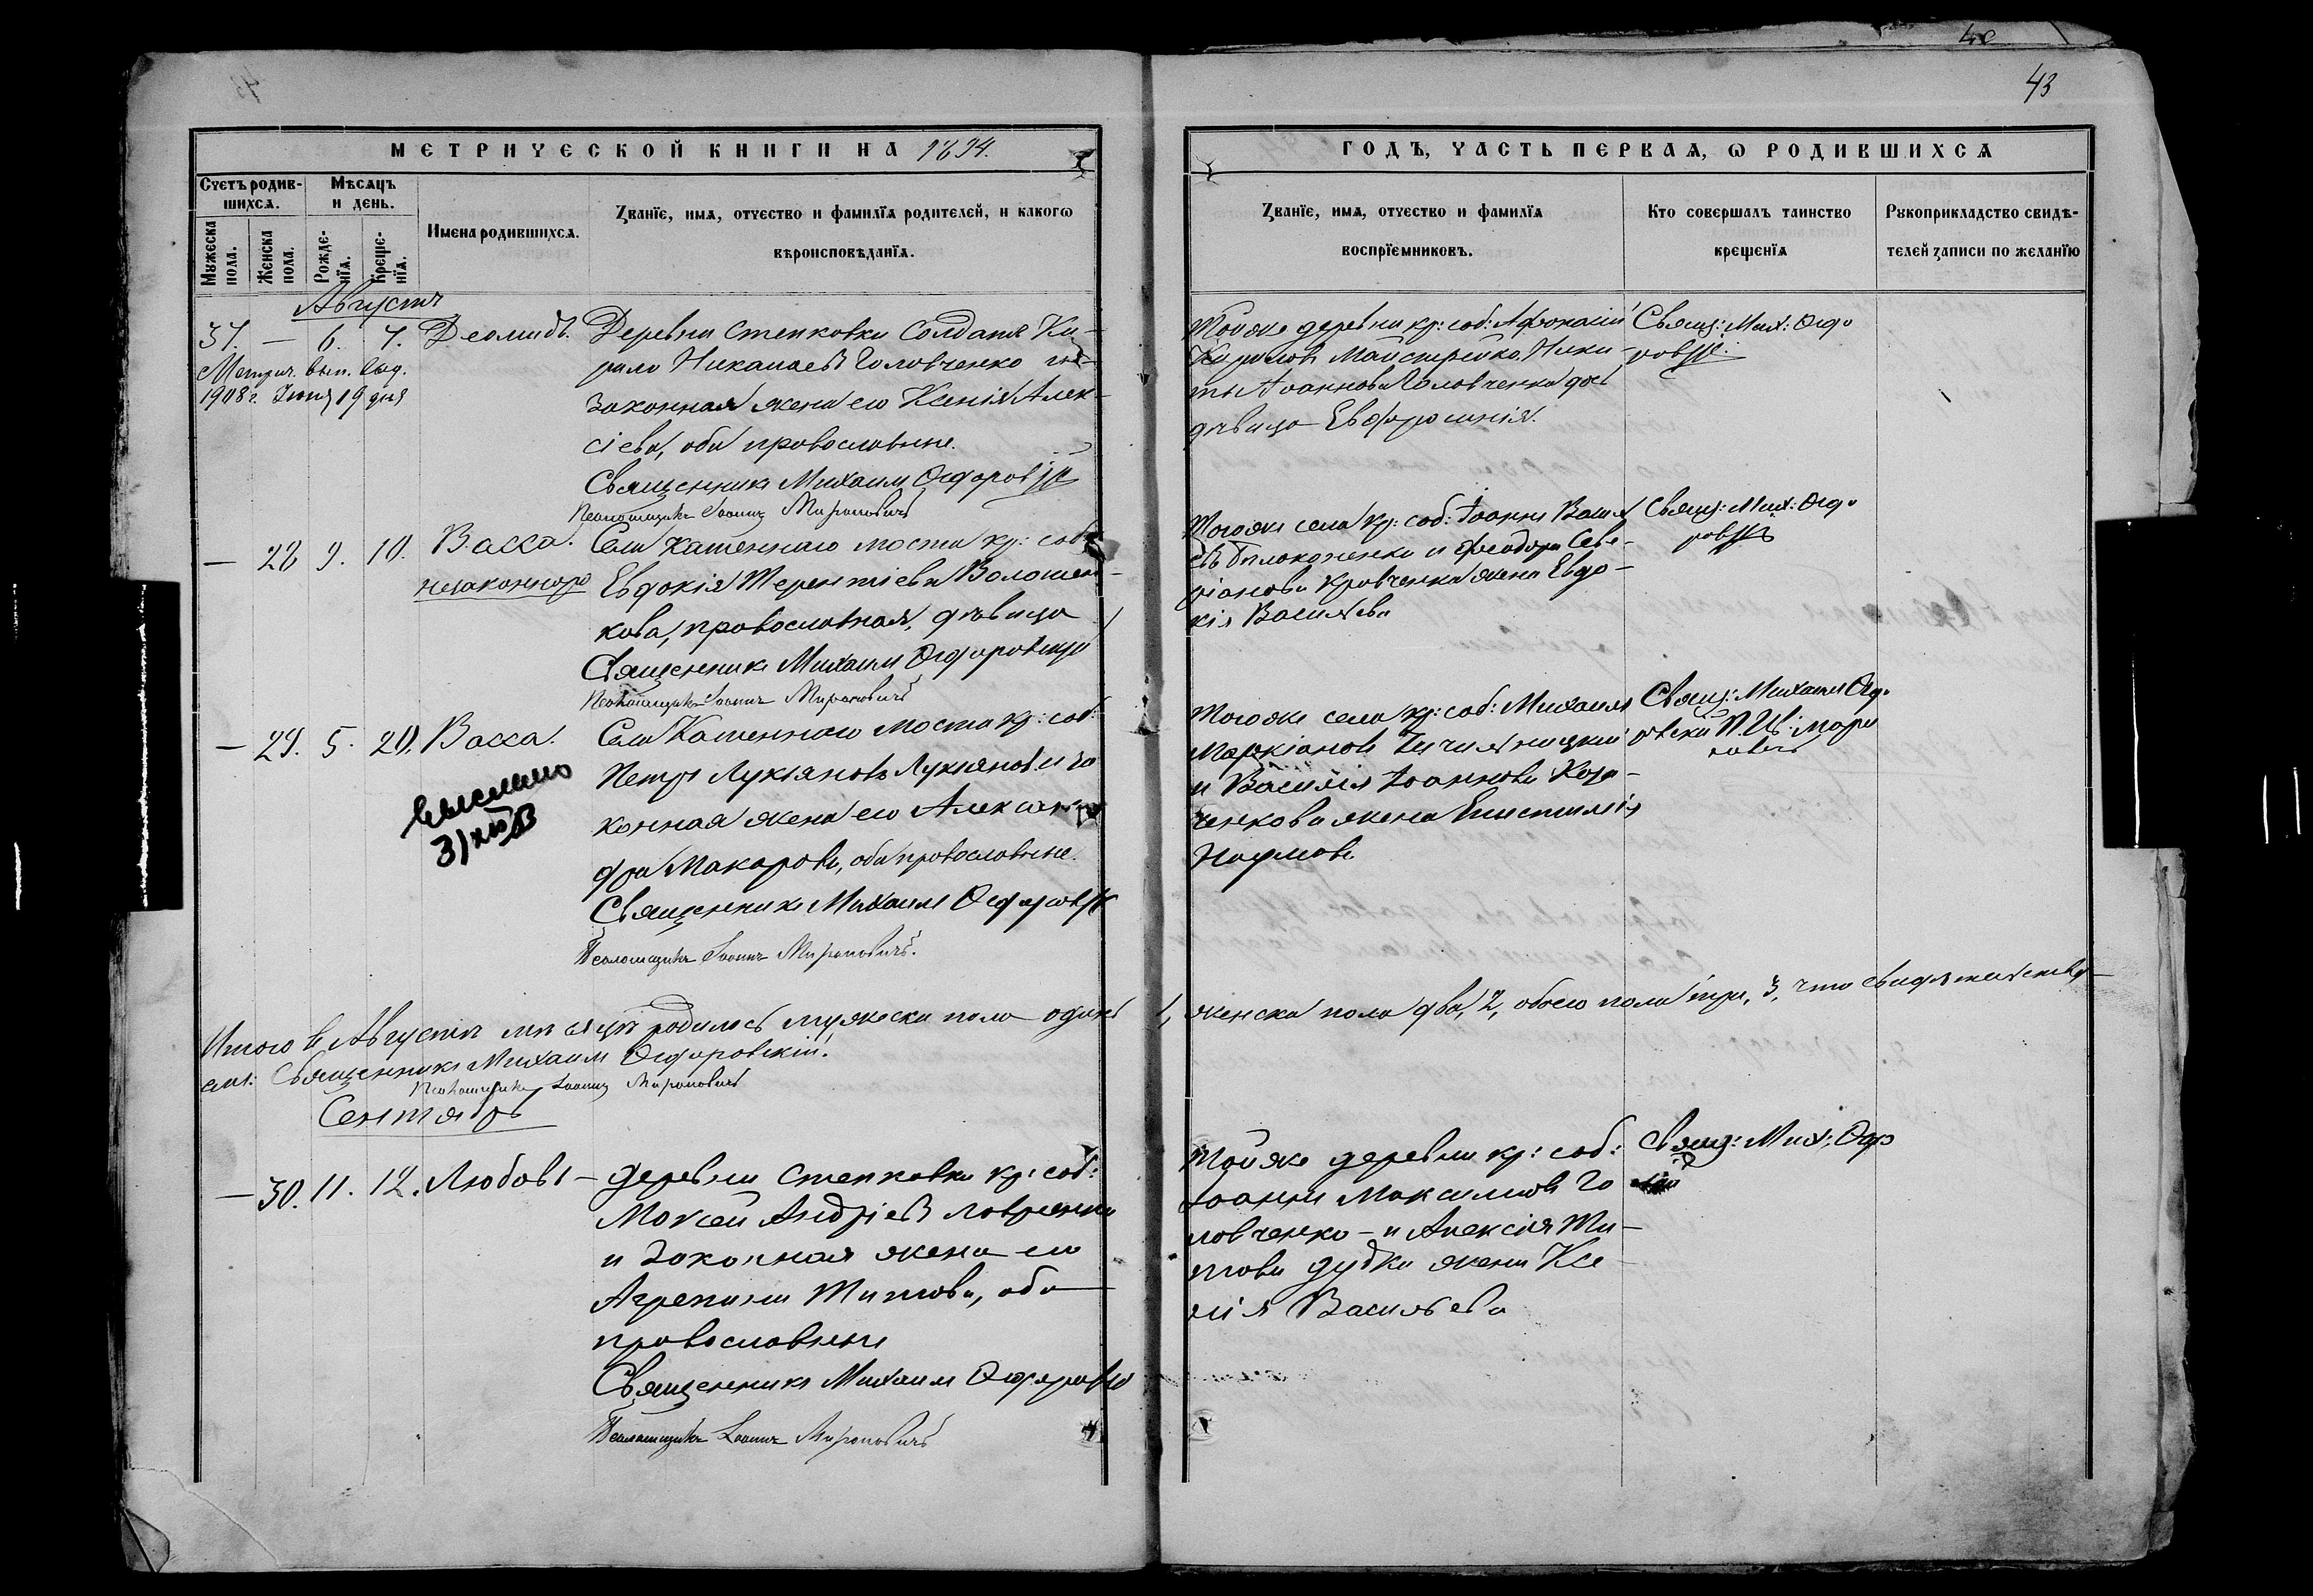 40
43
МЕТРИЧЕСКОЙ КНИГИ НА 1894.
ГОДЪ, ЧАСТЬ ПЕРВАѦ, Ѡ РОДИВШИХСѦ
Счетъ родив-
шихсѧ.
Мѣсѧцъ
и день.
Мꙋжеска
пола.
Женска
пола.
Рожде-
нїѧ.
Креще-
нїѧ.
Имена родившихсѧ.
Званїе, имѧ, отчество и фамилїѧ родителей, и какогѡ
вѣроисповѣданїѧ.
Званїе, имѧ, отчество и фамилїѧ
воспрїемниковъ.
Кто совершалъ таинство
крещенїѧ
Рꙋкоприкладство свидѣ-
телей записи по желанїю
Августъ
37. — 6. 7. Деомидъ.
Метрич. вып. выд.
1908 г. Іюня 19 дня
Деревни Степковки Солдатъ Ки-
рило Николаевъ Головченко и
законная жена его Ксенія Алек-
сіева, оба православные.
Священникъ Михаилъ
Псаломщикъ Іоаннъ Мироновичъ
Тойже деревни кр: соб: Афонасій
Кириловъ Майстренко, Ники-
ты Іоаннова Головченка дочь
дѣвица Евфросинія.
Свящ: Мих:
— 28 9. 10. Васса.
незаконнор
Села Каменнаго моста кр: соб:
Евдокія Терентіева Волошен-
кова, православная, дѣвица
Священникъ Михаилъ
Псаломщикъ Іоаннъ Мироновичъ
Тогоже села кр: соб: Іоаннъ Васил
евъ Бѣлоконенко и Феодора Севе-
ріанова Кравченка жена Евдо-
кія Васильева
Свящ: Мих:
— 29. 5. 20. Васса.
выслано
Села Каменнаго Моста кр: соб:
Петръ Лукіяновъ Лукіяновъ и за
конная жена его Алексан
дра Макарова, оба православные.
Священникъ Михаилъ
Псаломщикъ Іоаннъ Мироновичъ.
Тогоже села кр: соб: Михаилъ
Маркіановъ
и Василія Іоаннова
жена
Наумова
Свящ: Михаилъ
Итого в Августѣ мѣсяцѣ родилось мужеска пола одинъ
1, женска пола два, 2, обоего пола три, 3, что свидѣтельству-
емъ: Священникъ Михаилъ
Псаломщикъ Іоаннъ Мироновичъ
Сентябрь
— 30. 11. 12. Любовь —
деревни Степковки кр: соб:
Моксей Андріевъ
и законная жена его
Агрепина Титова, оба
православные
Священникъ Михаилъ
Псаломщикъ Іоаннъ Мироновичъ
Тойже деревни кр: соб:
Іоаннъ Максимовъ Го
ловченко — и Алексія Ти-
това Дудки жена Ксе-
нія Васильева
Свящ: Мих: